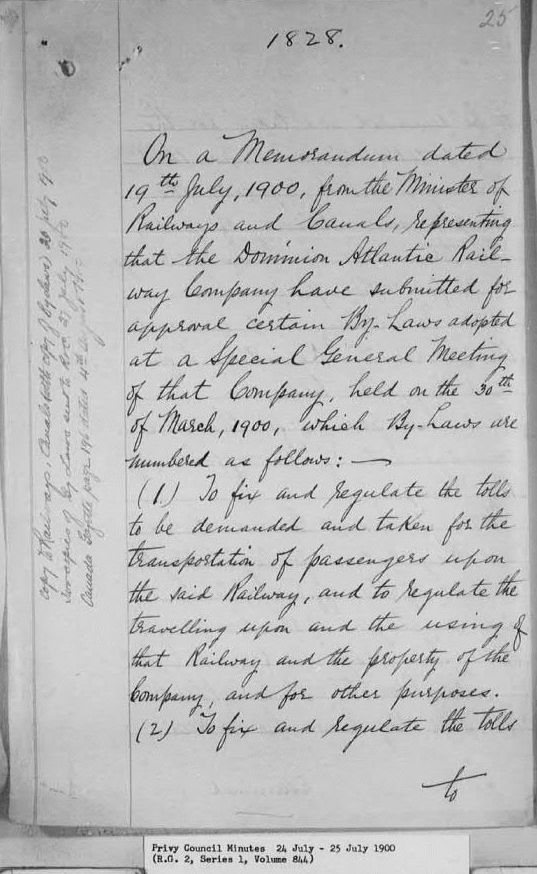 25
1828.
On a Memorandum dated
19th July, 1900, from the Minister of
Railways and Canals, representing
that the Dominion Atlantic Rail-
way Company have submitted for
approval certain By-Laws adopted
at a Special General Meeting
of that Company, held on the 30th
of March, 1900, which By-Laws are
numbered as follows: —
(1) To fix and regulate the tolls
to be demanded and taken for the
transportation of passengers upon
the said Railway, and to regulate the
travelling upon and the using of
that Railway and the property of the
Company, and for other purposes.
(2) To fix and regulate the tolls
to
Copy to Railways & Canals with copy of bylaws
two copies of by Laws sent to 27 July
Canada Gazette page
Privy Council Minutes 24 July - 25 July 1900
(R.G. 2, Series 1, Volume 844)